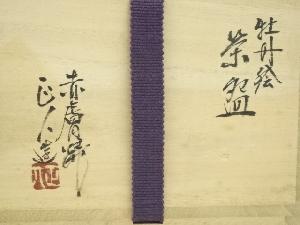 牡丹絵
茶盌
赤膚焼
正人造